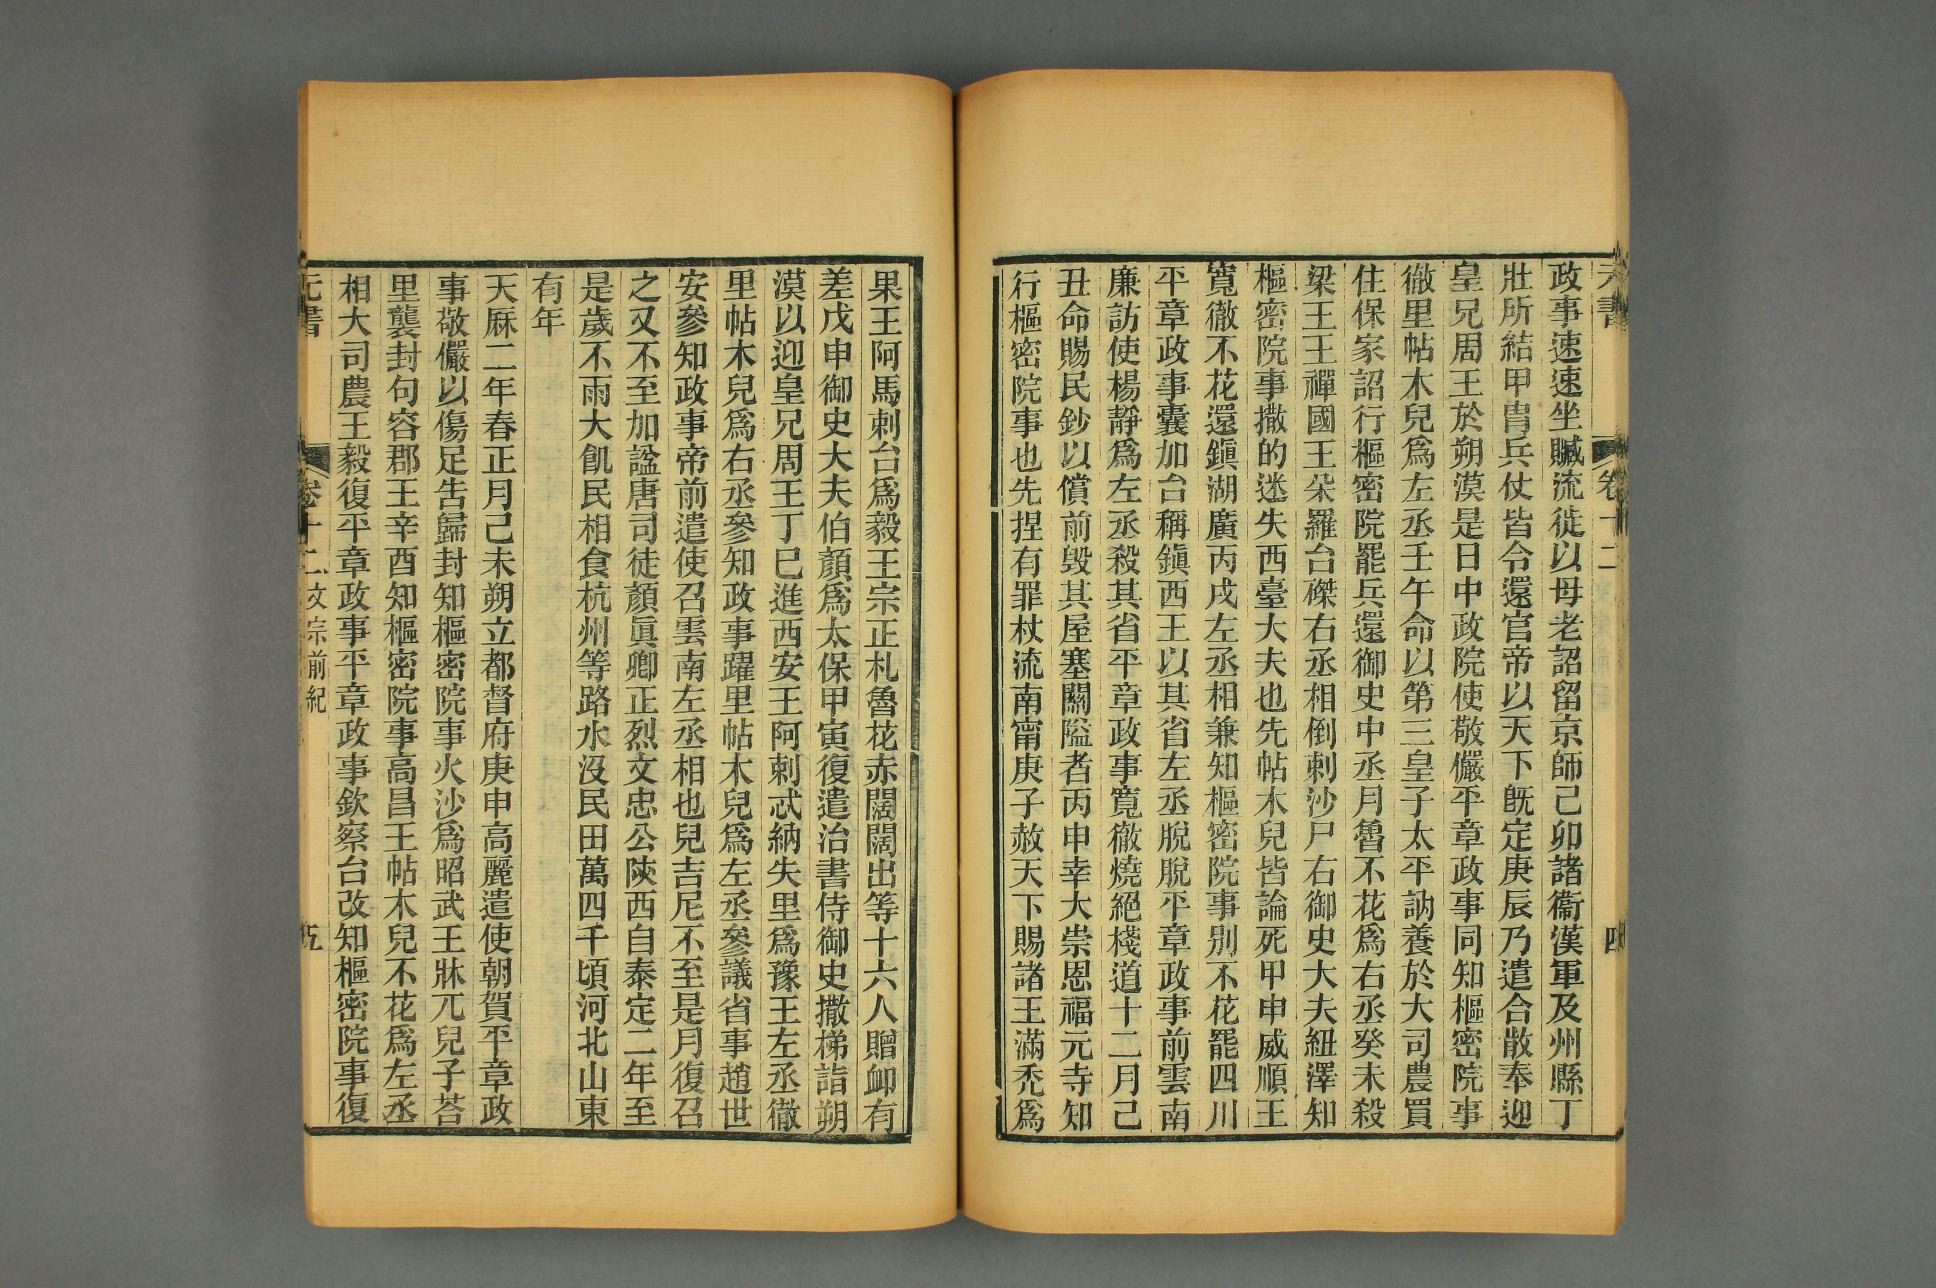 元書 卷十二 四
政事速速坐贓流徙以母老詔留京師己卯諸衞漢軍及州縣丁
壯所結甲冑兵仗皆令還官帝以天下旣定庚辰乃遣合散奉迎
皇兄周王於朔漠是日中政院使敬儼平章政事同知樞密院事
徹里帖木兒爲左丞壬午命以第三皇子太平訥養於大司農買
住保家詔行樞密院罷兵還御史中丞月魯不花爲右丞癸未殺
梁王王禪國王朵羅台磔右丞相倒剌沙尸右御史大夫紐澤知
樞密院事撒的迷失西臺大夫也先帖木兒皆論死甲申威順王
寬徹不花還鎭湖廣丙戌左丞相兼知樞密院事別不花罷四川
平章政事囊加台稱鎭西王以其省左丞脫脫平章政事前雲南
廉訪使楊靜爲左丞殺其省平章政事寬徹燒絕棧道十二月己
丑命賜民鈔以償前毀其屋塞關隘者丙申幸大崇恩福元寺知
行樞密院事也先捏有罪杖流南甯庚子赦天下賜諸王滿禿爲
果王阿馬剌台爲毅王宗正札魯花赤闊闊出等十六人贈卹有
差戊申御史大夫伯顏爲太保甲寅復遣治書侍御史撒梯詣朔
漠以迎皇兄周王丁巳進西安王阿剌忒納失里爲豫王左丞徹
里帖木兒爲右丞參知政事躍里帖木兒爲左丞參議省事趙世
安參知政事帝前遣使召雲南左丞相也兒吉尼不至是月復召
之又不至加諡唐司徒顏眞卿正烈文忠公陝西自泰定二年至
是歲不雨大飢民相食杭州等路水沒民田萬四千頃河北山東
有年
天厤二年春正月己未朔立都督府庚申高麗遣使朝賀平章政
事敬儼以傷足告歸封知樞密院事火沙爲昭武王牀兀兒子荅
里襲封句容郡王辛酉知樞密院事高昌王帖木兒不花爲左丞
相大司農王毅復平章政事平章政事欽察台改知樞密院事復
元書 卷十二 文宗前紀 五